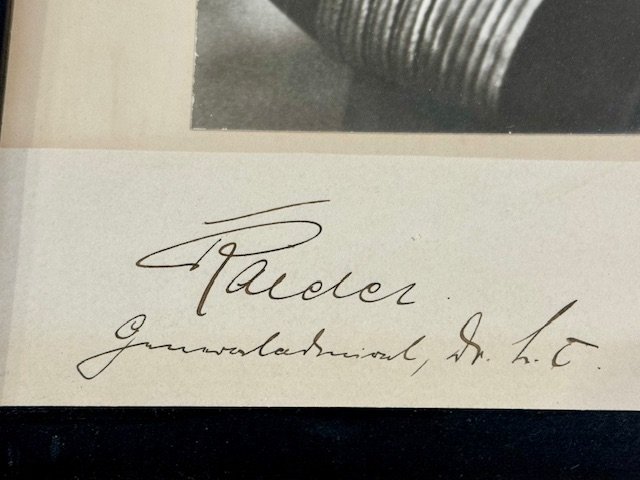 Raeder.
Generaladmiral, Dr. h. c.